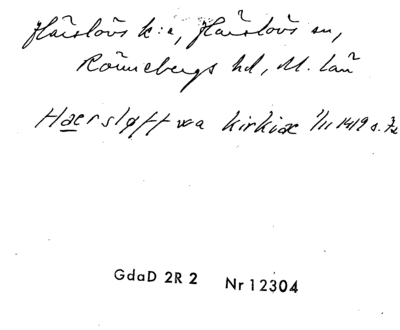 Härslövs k:a, Härslövs sn,
Rönnebergs hd, M. län
Haersløff wa kirkiæ 1/11 1419 s. 72
GdaD 2R 2 Nr 12304